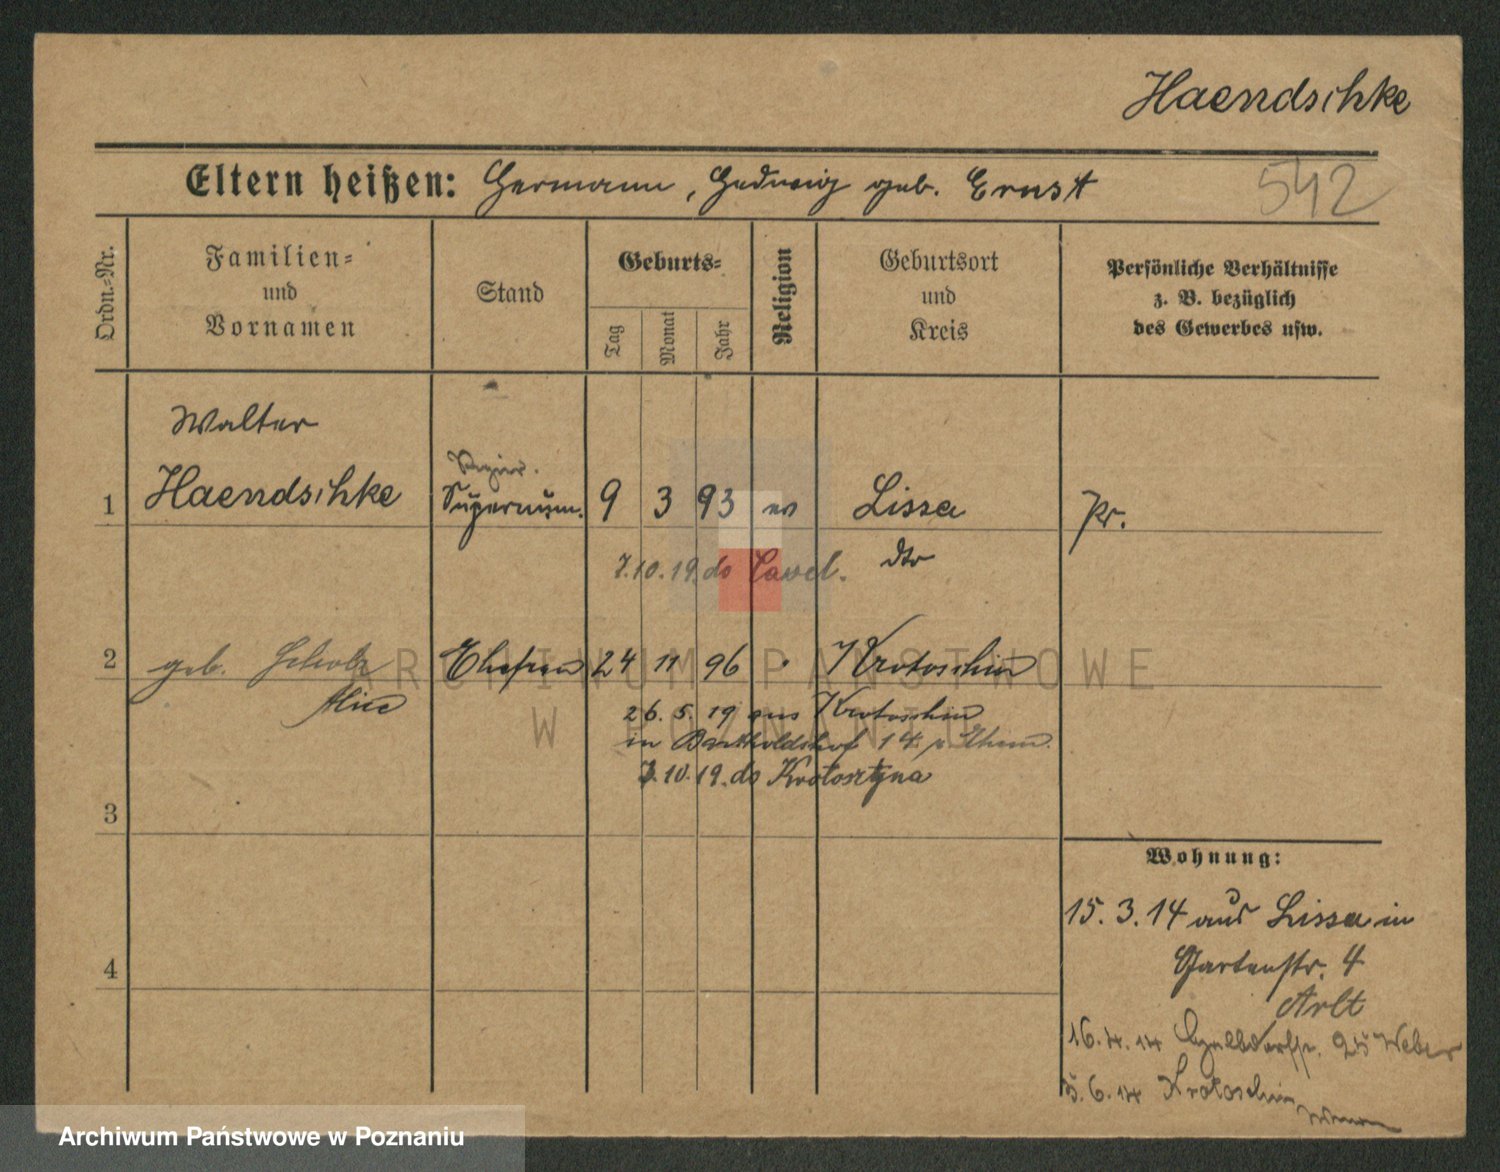 Haendschke
Eltern heißen: Hermann, Hedwig geb. Ernst
542
Ordn.-Nr.
Familien-
und
Vornamen
Stand
Geburts-
Tag
Monat
Jahr
Religion
Geburtsort
und
Kreis
Persönliche Verhältnisse
z. B. bezüglich
des Gewerbes usw.
Walter
1 Haendschke Supernum. 9 3 93 ev Lissa Pr.
7.10.19 do dto
2 geb. Scholz Ehefrau 24 11 96 Krotoschin
Alice
26. 5. 19 aus Krotoschin
in Bartholdshof 14
7.10.19. do Krotoszyna
3
4
Wohnung:
15. 3. 14 aus Lissa in
Gartenstr. 4
Arlt
16. 4. 14 25 Weber
6. 14 Krotoschin
ARCHIWUM PAŃSTWOWE
W POZNANIU
Archiwum Państwowe w Poznaniu